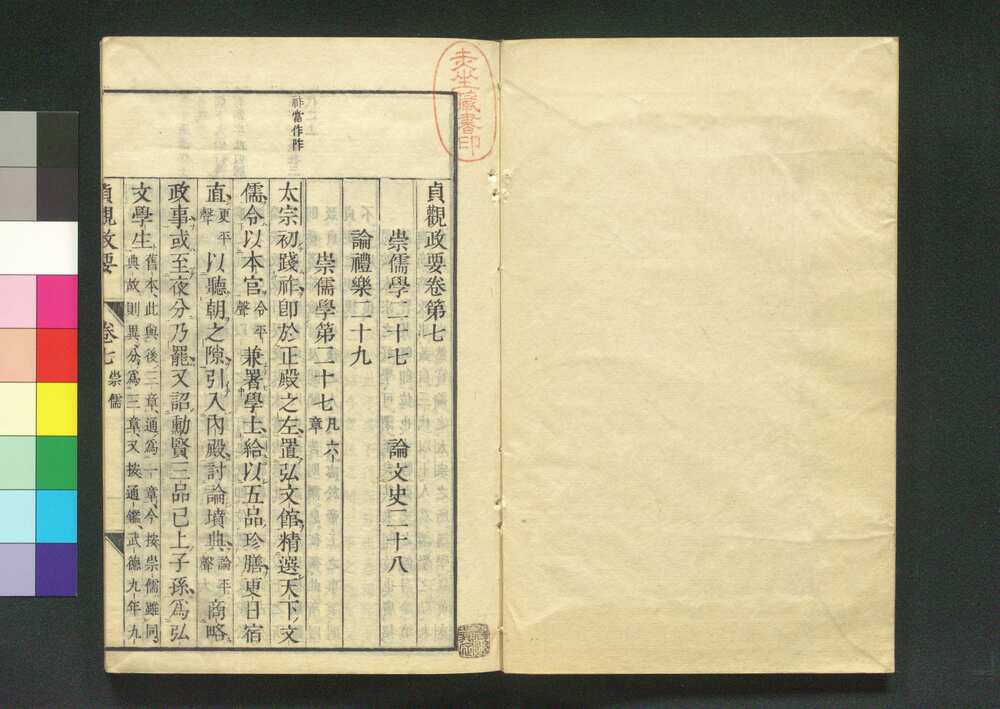 貞觀政要卷第七
崇儒學二十七　論文史二十八
論禮樂二十九
崇儒學第二十七凡六章
太宗初踐祚即於正殿之左置弘文館精選天下文
儒令以本官令平聲兼署學士給以五品珍膳更日宿
直更平聲以聽朝之隙引入內殿討論墳典論平聲商略
政事或至夜分乃罷又詔勳賢三品已上子孫爲弘
文學生舊本此與後二章通爲一章今按崇儒雖同典故則異分爲三章又按通鑑武德九年九
貞觀政要　卷七　崇儒
祚當作阼
藏書印